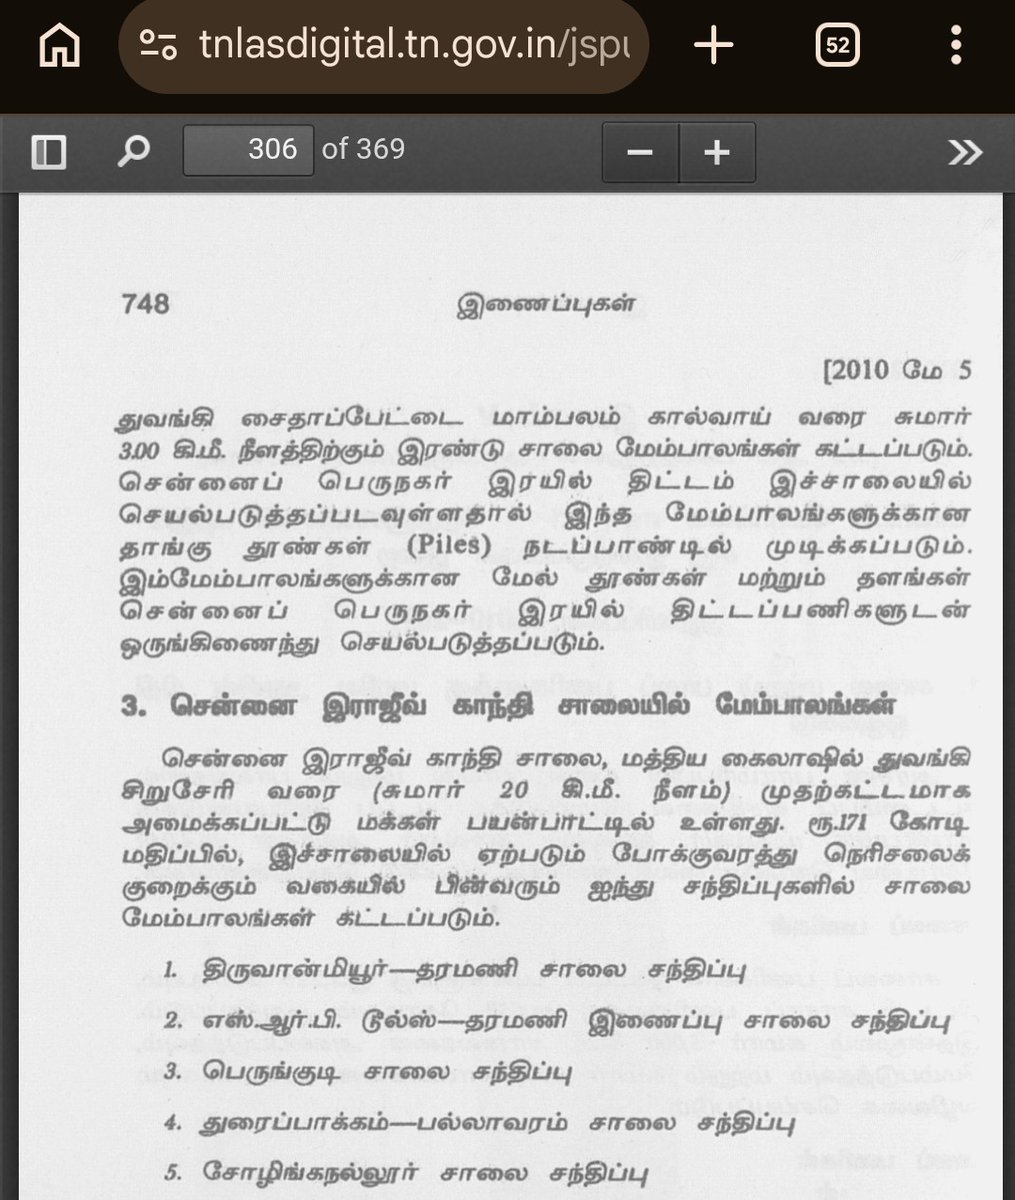 tnlasdigital.tn.gov.in/jspu
52
306 of 369
748 இணைப்புகள்
[2010 மே 5
துவங்கி சைதாப்பேட்டை மாம்பலம் கால்வாய் வரை சுமார்
3.00 கி.மீ. நீளத்திற்கும் இரண்டு சாலை மேம்பாலங்கள் கட்டப்படும்.
சென்னைப் பெருநகர் இரயில் திட்டம் இச்சாலையில்
செயல்படுத்தப்படவுள்ளதால் இந்த மேம்பாலங்களுக்கான
தாங்கு தூண்கள் (Piles) நடப்பாண்டில் முடிக்கப்படும்.
இம்மேம்பாலங்களுக்கான மேல் தூண்கள் மற்றும் தளங்கள்
சென்னைப் பெருநகர் இரயில் திட்டப்பணிகளுடன்
ஒருங்கிணைந்து செயல்படுத்தப்படும்.
3. சென்னை இராஜீவ் காந்தி சாலையில் மேம்பாலங்கள்
சென்னை இராஜீவ் காந்தி சாலை, மத்திய கைலாஷில் துவங்கி
சிறுசேரி வரை (சுமார் 20 கி.மீ. நீளம்) முதற்கட்டமாக
அமைக்கப்பட்டு மக்கள் பயன்பாட்டில் உள்ளது. ரூ.171 கோடி
மதிப்பில், இச்சாலையில் ஏற்படும் போக்குவரத்து நெரிசலைக்
குறைக்கும் வகையில் பின்வரும் ஐந்து சந்திப்புகளில் சாலை
மேம்பாலங்கள் கட்டப்படும்.
1. திருவான்மியூர்—தரமணி சாலை சந்திப்பு
2. எஸ்.ஆர்.பி. டூல்ஸ்—தரமணி இணைப்பு சாலை சந்திப்பு
3. பெருங்குடி சாலை சந்திப்பு
4. துரைப்பாக்கம்—பல்லாவரம் சாலை சந்திப்பு
5. சோழிங்கநல்லூர் சாலை சந்திப்பு